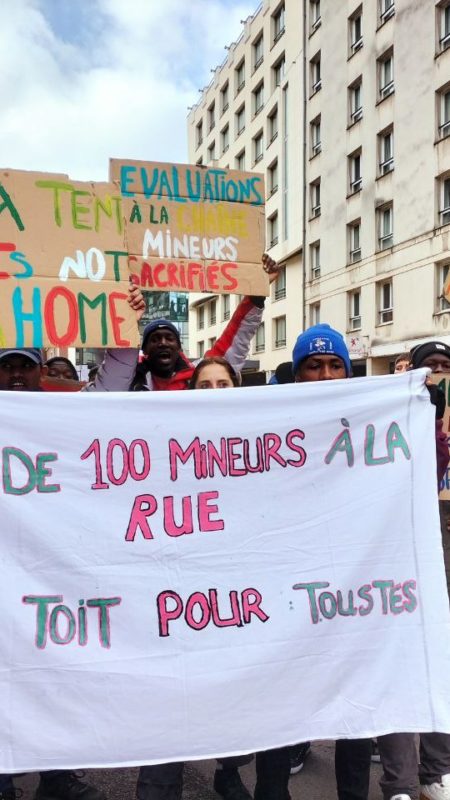 A TENT
IS NOT
A HOME
EVALUATIONS
À LA CHAÎNE
MINEURS
SACRIFIÉS
DE 100 MINEURS À LA
RUE
TOIT POUR TOUSTES